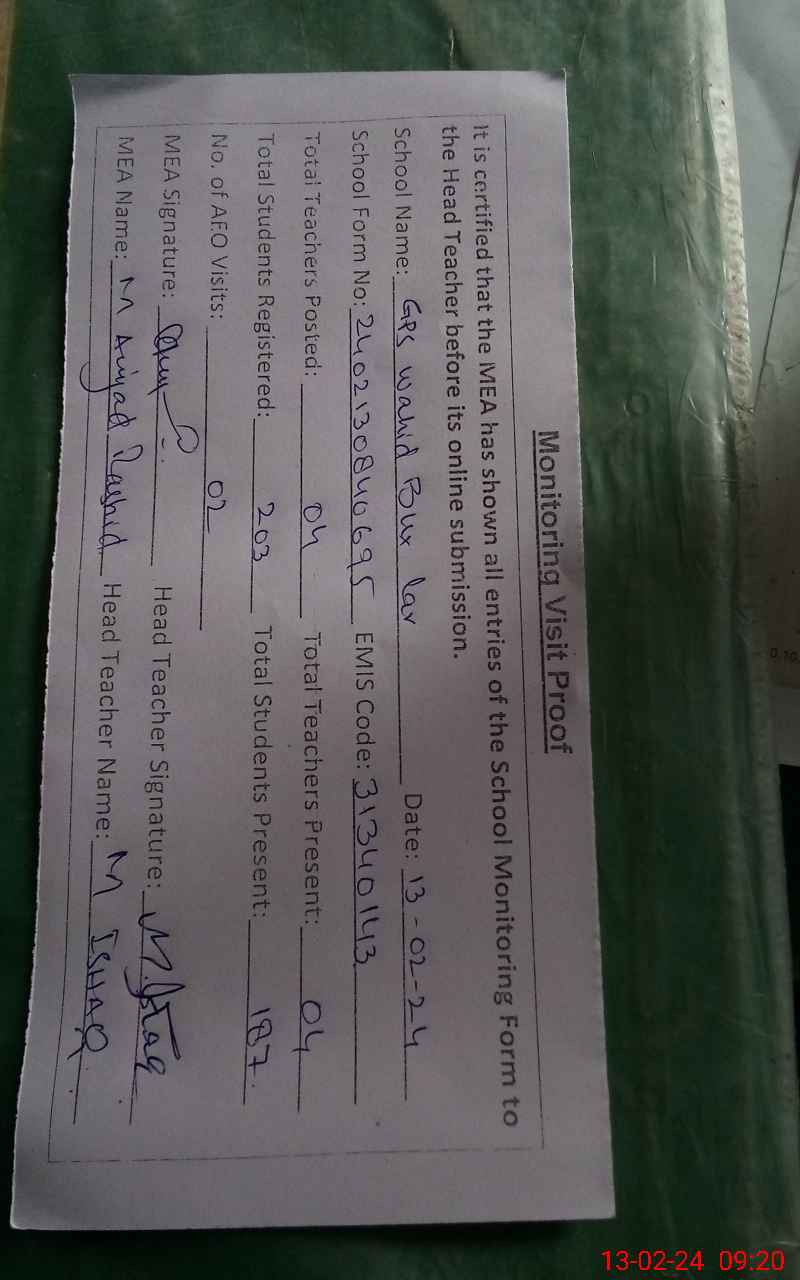 Monitoring Visit Proof
It is certified that the MEA has shown all entries of the School Monitoring Form to
the Head Teacher before its online submission.
School Name: GPS Wahid Bux lar Date: 13-02-24
School Form No: 2402130840695 EMIS Code: 31340143
Total Teachers Posted: 04 Total Teachers Present: 04
Total Students Registered: 203 Total Students Present: 187
No. of AEO Visits: 02
MEA Signature: Head Teacher Signature: M. Ishaq
MEA Name: M Amjad Rashid Head Teacher Name: M ISHAQ
13-02-24 09:20